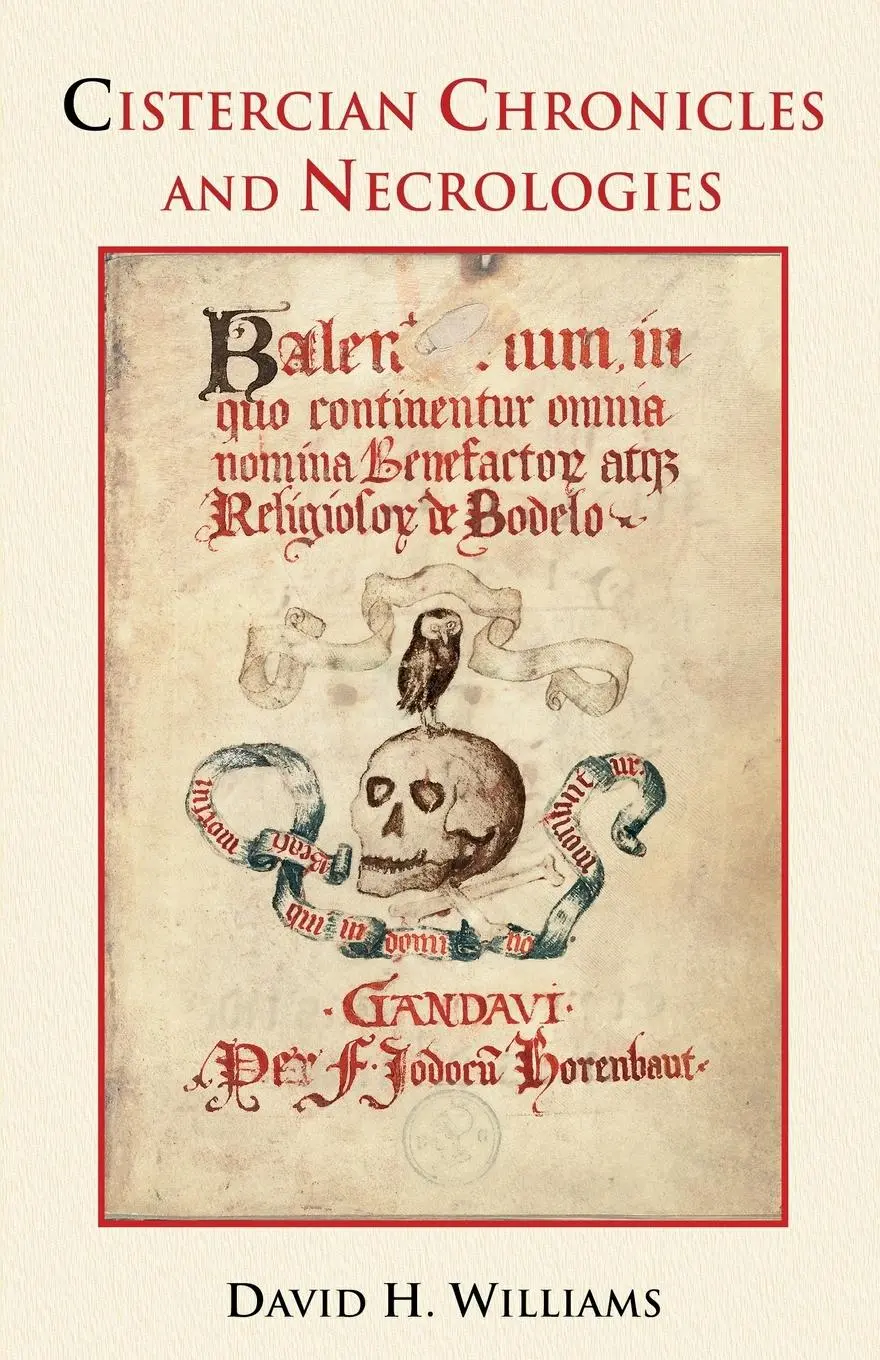 CISTERCIAN CHRONICLES
AND NECROLOGIES
Balen um, in
quo continentur omnia
nomina Benefactoꝝ atqꝫ
Religiosoꝝ de Bodelo
Beati
mortui
qui in domi no
moriant ur.
·GANDAVI·
Per F. Jodocū Horenbaut
DAVID H. WILLIAMS